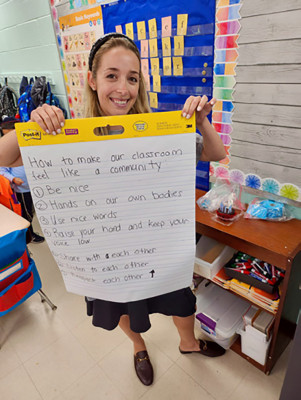 Post-it
3M
How to make our classroom
feel like a community
① Be nice
② Hands on our own bodies
③ Use nice words
④ Raise your hand and keep your
voice low
Share with each other
Listen to each other
each other ↑